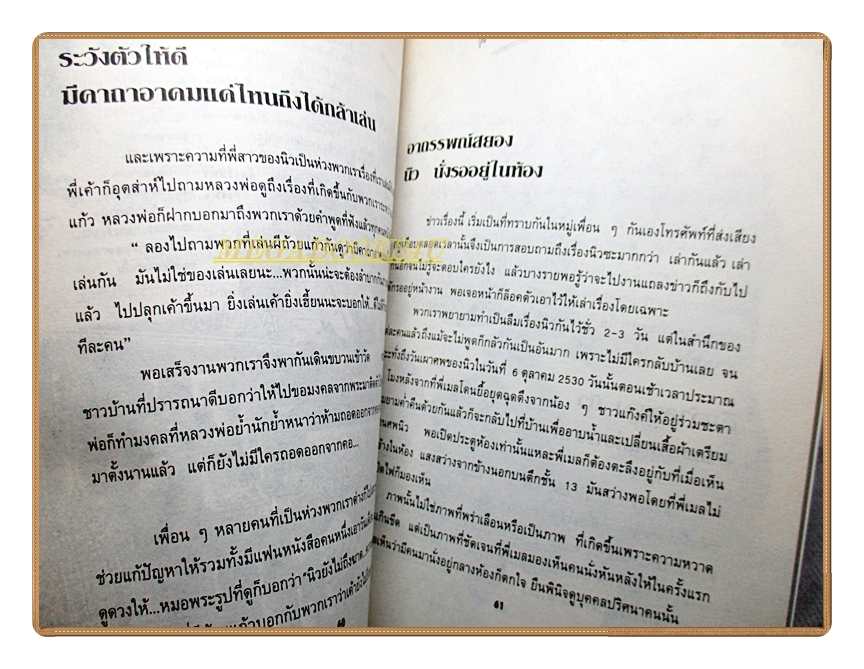 ระวังตัวให้ดี
มีคาถาอาคมแค่ไหนถึงได้กล้าเล่น
และเพราะความที่พี่สาวของนิวเป็นห่วงพวกเราเรื่องที่เรา
พี่เค้าก็อุตส่าห์ไปถามหลวงพ่อดูถึงเรื่องที่เกิดขึ้นกับพวกเรา
แก้ว หลวงพ่อก็ฝากบอกมาถึงพวกเราด้วยคำพูดที่ฟังแล้วทุกคน
“ ลองไปถามพวกที่เล่นผีถ้วยแก้วกันดูว่ามีคาถา
เล่นกัน มันไม่ใช่ของเล่นเลยนะ...พวกนั้นน่ะจะต้องลำบาก
แล้ว ไปปลุกเค้าขึ้นมา ยิ่งเล่นเค้ายิ่งเฮี้ยนนะจะบอกให้..
ทีละคน”
พอเสร็จงานพวกเราจึงพากันเดินขบวนเข้าวัด
ชาวบ้านที่ปรารถนาดีบอกว่าให้ไปขอมงคลจากพระมา
พ่อก็ทำมงคลที่หลวงพ่อย้ำนักย้ำหนาว่าห้ามถอดออกจาก
มาตั้งนานแล้ว แต่ก็ยังไม่มีใครถอดออกจากคอ...
เพื่อน ๆ หลายคนที่เป็นห่วงพวกเราต่างก็
ช่วยแก้ปัญหาให้รวมทั้งมีแฟนหนังสือคนหนึ่งเอาวัน
ดูดวงให้...หมอพระรูปที่ดูก็บอกว่า"นิวยังไม่ถึงฆาต..
แก้วบอกกับพวกเราว่าเค้ายัง
60
อาถรรพณ์สยอง
นิว นั่งรออยู่ในห้อง
ข่าวเรื่องนี้ เริ่มเป็นที่ทราบกันในหมู่เพื่อน ๆ กันเองโทรศัพท์ที่ส่งเสียง
ตลอดเวลานั้นจึงเป็นการสอบถามถึงเรื่องนิวซะมากกว่า เล่ากันแล้ว เล่า
จนไม่รู้จะตอบใครยังไง แล้วบางรายพอรู้ว่าจะไปงานแถลงข่าวก็ถึงกับไป
รออยู่หน้างาน พอเจอหน้าก็ล็อคตัวเอาไว้ให้เล่าเรื่องโดยเฉพาะ
พวกเราพยายามทำเป็นลืมเรื่องนิวกันไว้ชั่ว 2-3 วัน แต่ในสำนึกของ
คนแล้วถึงแม้จะไม่พูดก็กลัวกันเป็นอันมาก เพราะไม่มีใครกลับบ้านเลย จน
ทั่งถึงวันเผาศพของนิวในวันที่ 6 ตุลาคม 2530 วันนั้นตอนเช้าเวลาประมาณ
โมงหลังจากที่พี่เมลโดนยื้อยุดฉุดดึงจากน้อง ๆ ชาวแก๊งค์ให้อยู่ร่วมชะตา
ยามค่ำคืนด้วยกันแล้วก็จะกลับไปที่บ้านเพื่ออาบน้ำและเปลี่ยนเสื้อผ้าเตรียม
ศพนิว พอเปิดประตูห้องเท่านั้นแหละพี่เมลก็ต้องตะลึงอยู่กับที่เมื่อเห็น
ข้างในห้อง แสงสว่างจากข้างนอกบนตึกชั้น 13 มันสว่างพอโดยที่พี่เมลไม่
ไฟก็มองเห็น
ภาพนั้นไม่ใช่ภาพที่พร่าเลือนหรือเป็นภาพ ที่เกิดขึ้นเพราะความหวาด
เกินขีด แต่เป็นภาพที่ชัดเจนที่พี่เมลมองเห็นคนนั่งหันหลังให้ในครั้งแรก
เห็นว่ามีคนมานั่งอยู่กลางห้องก็ตกใจ ยืนพินิจดูบุคคลปริศนาคนนั้น
61